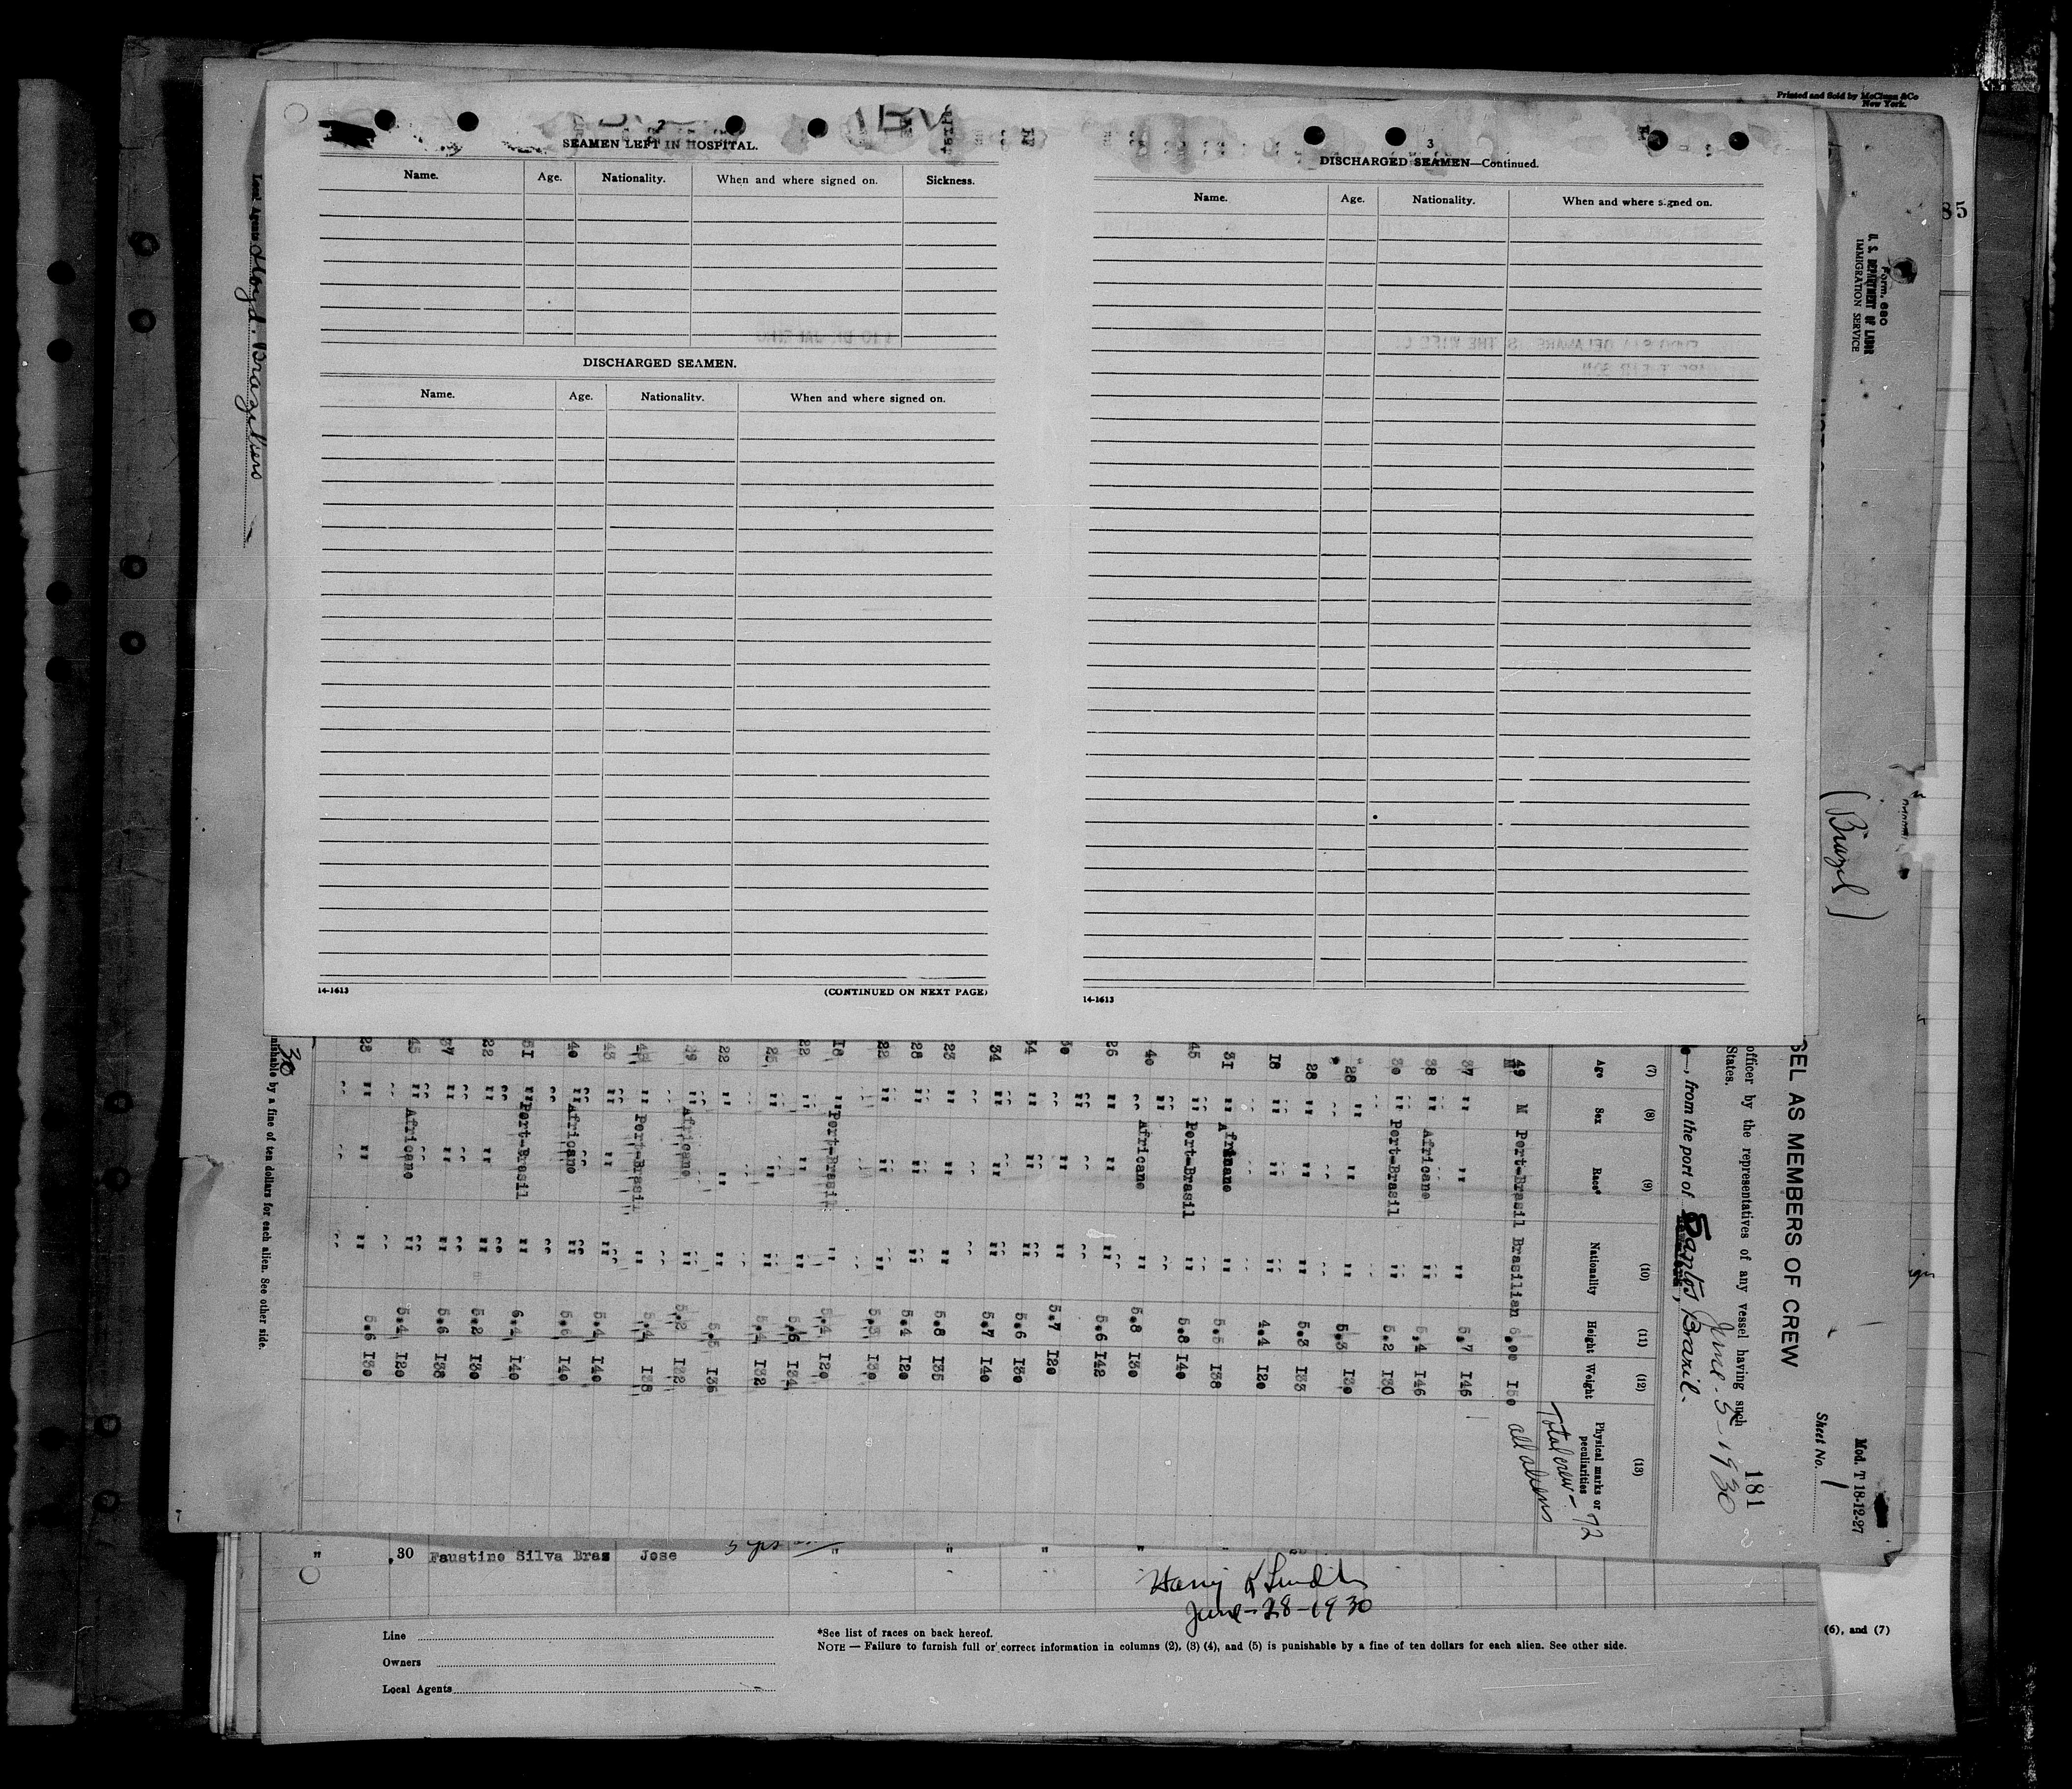 Printed and Sold by McClean & Co
New York.
2
SEAMEN LEFT IN HOSPITAL.
Name. Age. Nationality. When and where signed on. Sickness.
DISCHARGED SEAMEN.
Name. Age. Nationality. When and where signed on.
14-1613 (CONTINUED ON NEXT PAGE)
3
DISCHARGED SEAMEN—Continued.
Name. Age. Nationality. When and where signed on.
14-1613
85
Form. 680
U. S. DEPARTMENT OF LABOR
IMMIGRATION SERVICE
(Brazil)
Local Agents Lloyd. Braziliero
Mod. T 18-12-27
Sheet No. 1
SEL AS MEMBERS OF CREW
181
officer by the representatives of any vessel having such
States.
June-5-1930
, from the port of Santos, Brazil.
(7) (8) (9) (10) (11) (12) (13)
Age Sex Race* Nationality Height Weight Physical marks or peculiarities
Total crew - 72
all aliens
49 M Port-Brasil Brasilian 6.00 150
37 " " " 5.7 146
38 " Africano " 5.4 146
30 " Port-Brasil " 5.2 130
28 " " " 5.3 130
28 " " " 5.3 133
18 " " " 4.4 120
31 " Africano " 5.5 138
45 " Port-Brasil " 5.8 140
40 " Africano " 5.8 130
26 " " " 5.6 142
30 " " " 5.7 120
34 " " " 5.6 130
34 " " " 5.7 140
23 " " " 5.8 135
28 " " " 5.4 120
22 " " " 5.3 130
18 " Port-Brasil " 5.4 120
22 " " " 5.6 134
25 " " " 5.4 132
22 " " " 5.5 136
39 " Africano " 5.2 132
43 " Port-Brasil " 5.4 138
43 " " " 5.4 140
40 " Africano " 5.6 140
51 " Port-Brasil " 6.4 140
22 " " " 5.2 130
37 " " " 5.6 138
45 " Africano " 5.4 120
28 " " " 5.6 130
30
nishable by a fine of ten dollars for each alien. See other side.
" 30 Faustino Silva Bras Jose 3 yrs " " " "
June-28-1930
Line
Owners
Local Agents
*See list of races on back hereof.
NOTE — Failure to furnish full or correct information in columns (2), (3) (4), and (5) is punishable by a fine of ten dollars for each alien. See other side.
(6), and (7)